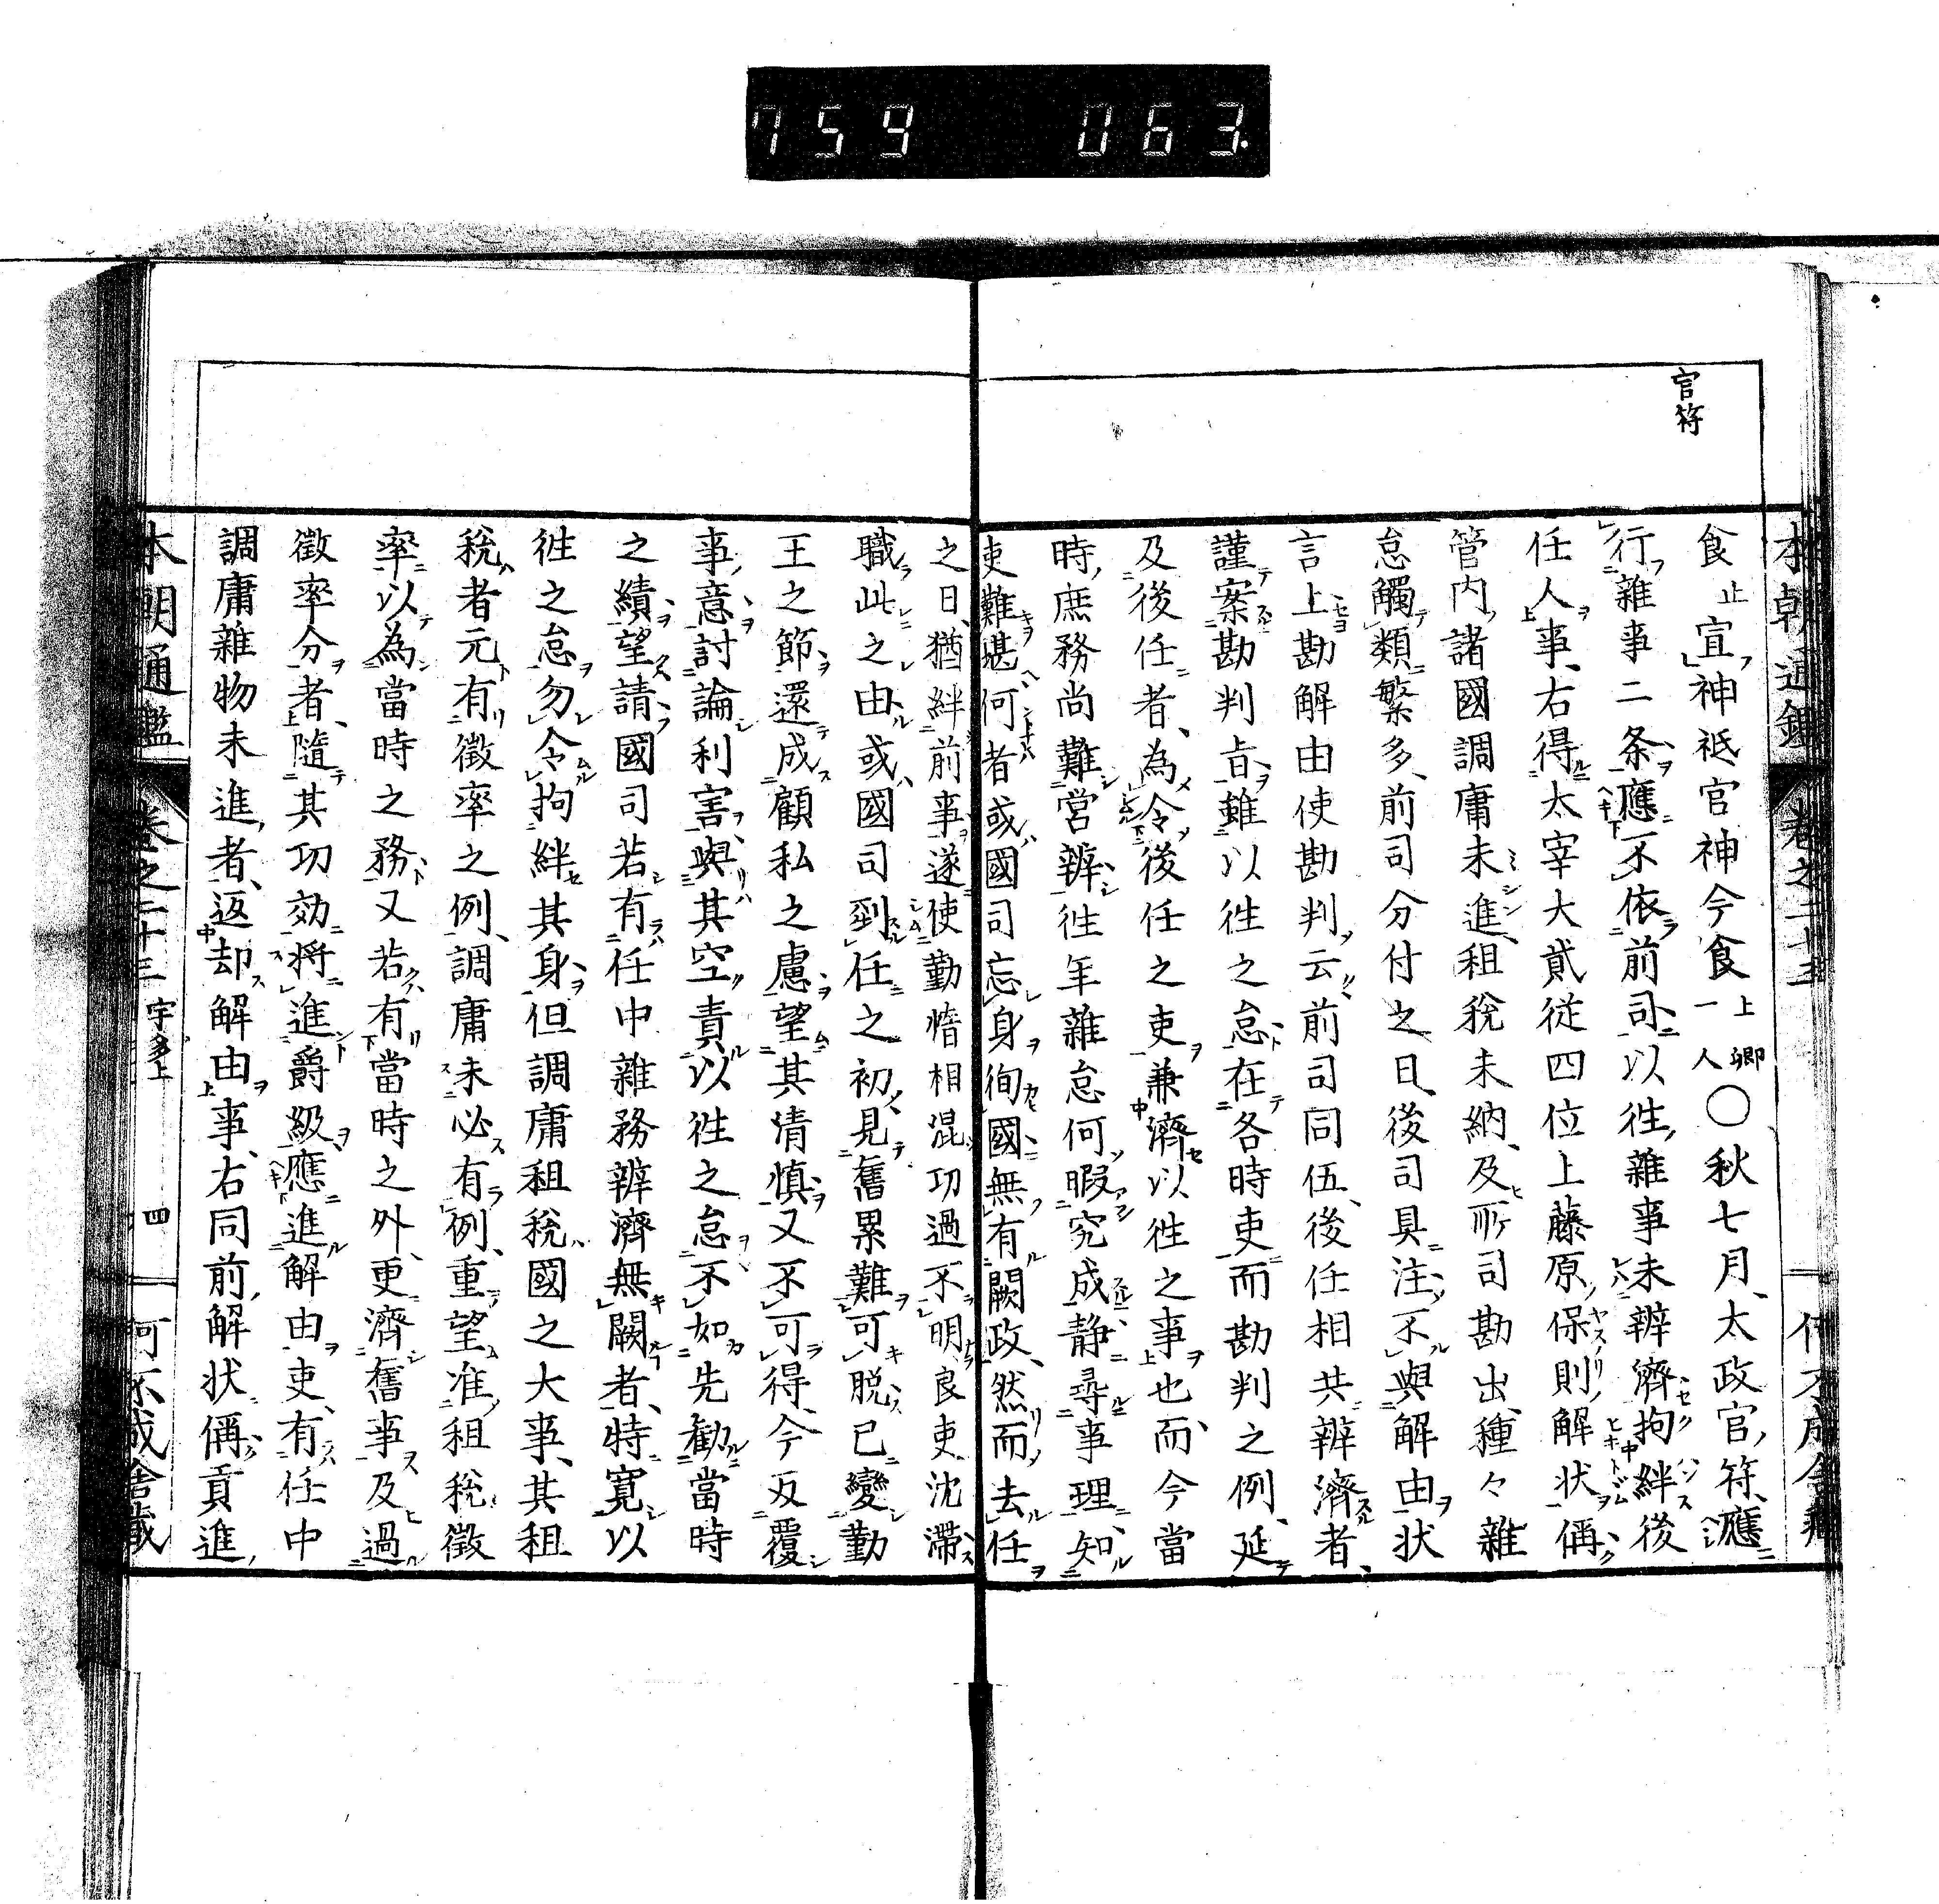 759 063.
官符
本朝通鑑 卷之二十三
食止宜神祇官神今食上卿一人〇秋七月太政官符應
行雜事二条應不依前司以徃雜事未辨濟拘絆後
任人事右得太宰大貳従四位上藤原保則解状偁
管内諸國調庸未進租稅未納及所司勘出種々雜
怠觸類繁多前司分付之日後司具注不與解由状
言上勘解由使勘判云前司同伍後任相共辨濟者
謹案勘判㫖雖以徃之怠在各時吏而勘判之例延
及後任者為令後任之吏兼濟以徃之事也而今當
時庶務尚難営辨徃年雜怠何暇究成静尋事理知
吏難堪何者或國司忘身徇國無有闕政然而去任
之日猶絆前事遂使勤惰相混功過不明良吏沈滯
職此之由或國司到任之初見舊累難可脱已變勤
王之節還成顧私之慮望其清慎又不可得今反覆
事意討論利害與其空責以徃之怠不如先勸當時
之績望請國司若有任中雜務辨濟無闕者特寛以
徃之怠勿令拘絆其身但調庸租稅國之大事其租
稅者元有徵率之例調庸未必有例重望准租稅徵
率以為當時之務又若有當時之外更濟舊事及過
徵率分者隨其功効將進爵級應進解由吏有任中
調庸雜物未進者返却解由事右同前解状偁貢進
本朝通鑑 卷之二十三 宇多上 四 何不成舎藏